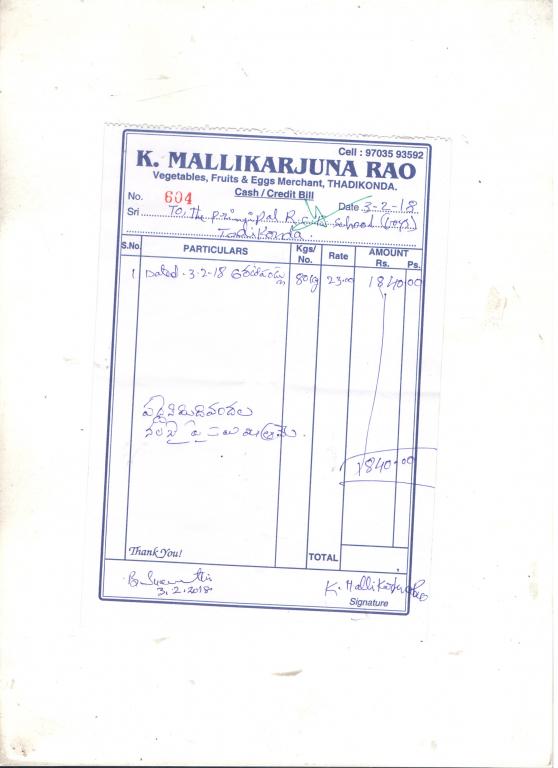 Cell : 97035 93592
K. MALLIKARJUNA RAO
Vegetables, Fruits & Eggs Merchant, THADIKONDA.
Cash / Credit Bill
No. 604 Date 3-2-18
Sri To, The principal school
Tadikonda.
S.No. PARTICULARS Kgs/ No. Rate AMOUNT Rs. Ps.
1 Dated. 3-2-18 80kg 23.00 1840 00
1840.00
Thank You! TOTAL
3.2.2018 K. Mallikarjuna Rao
Signature